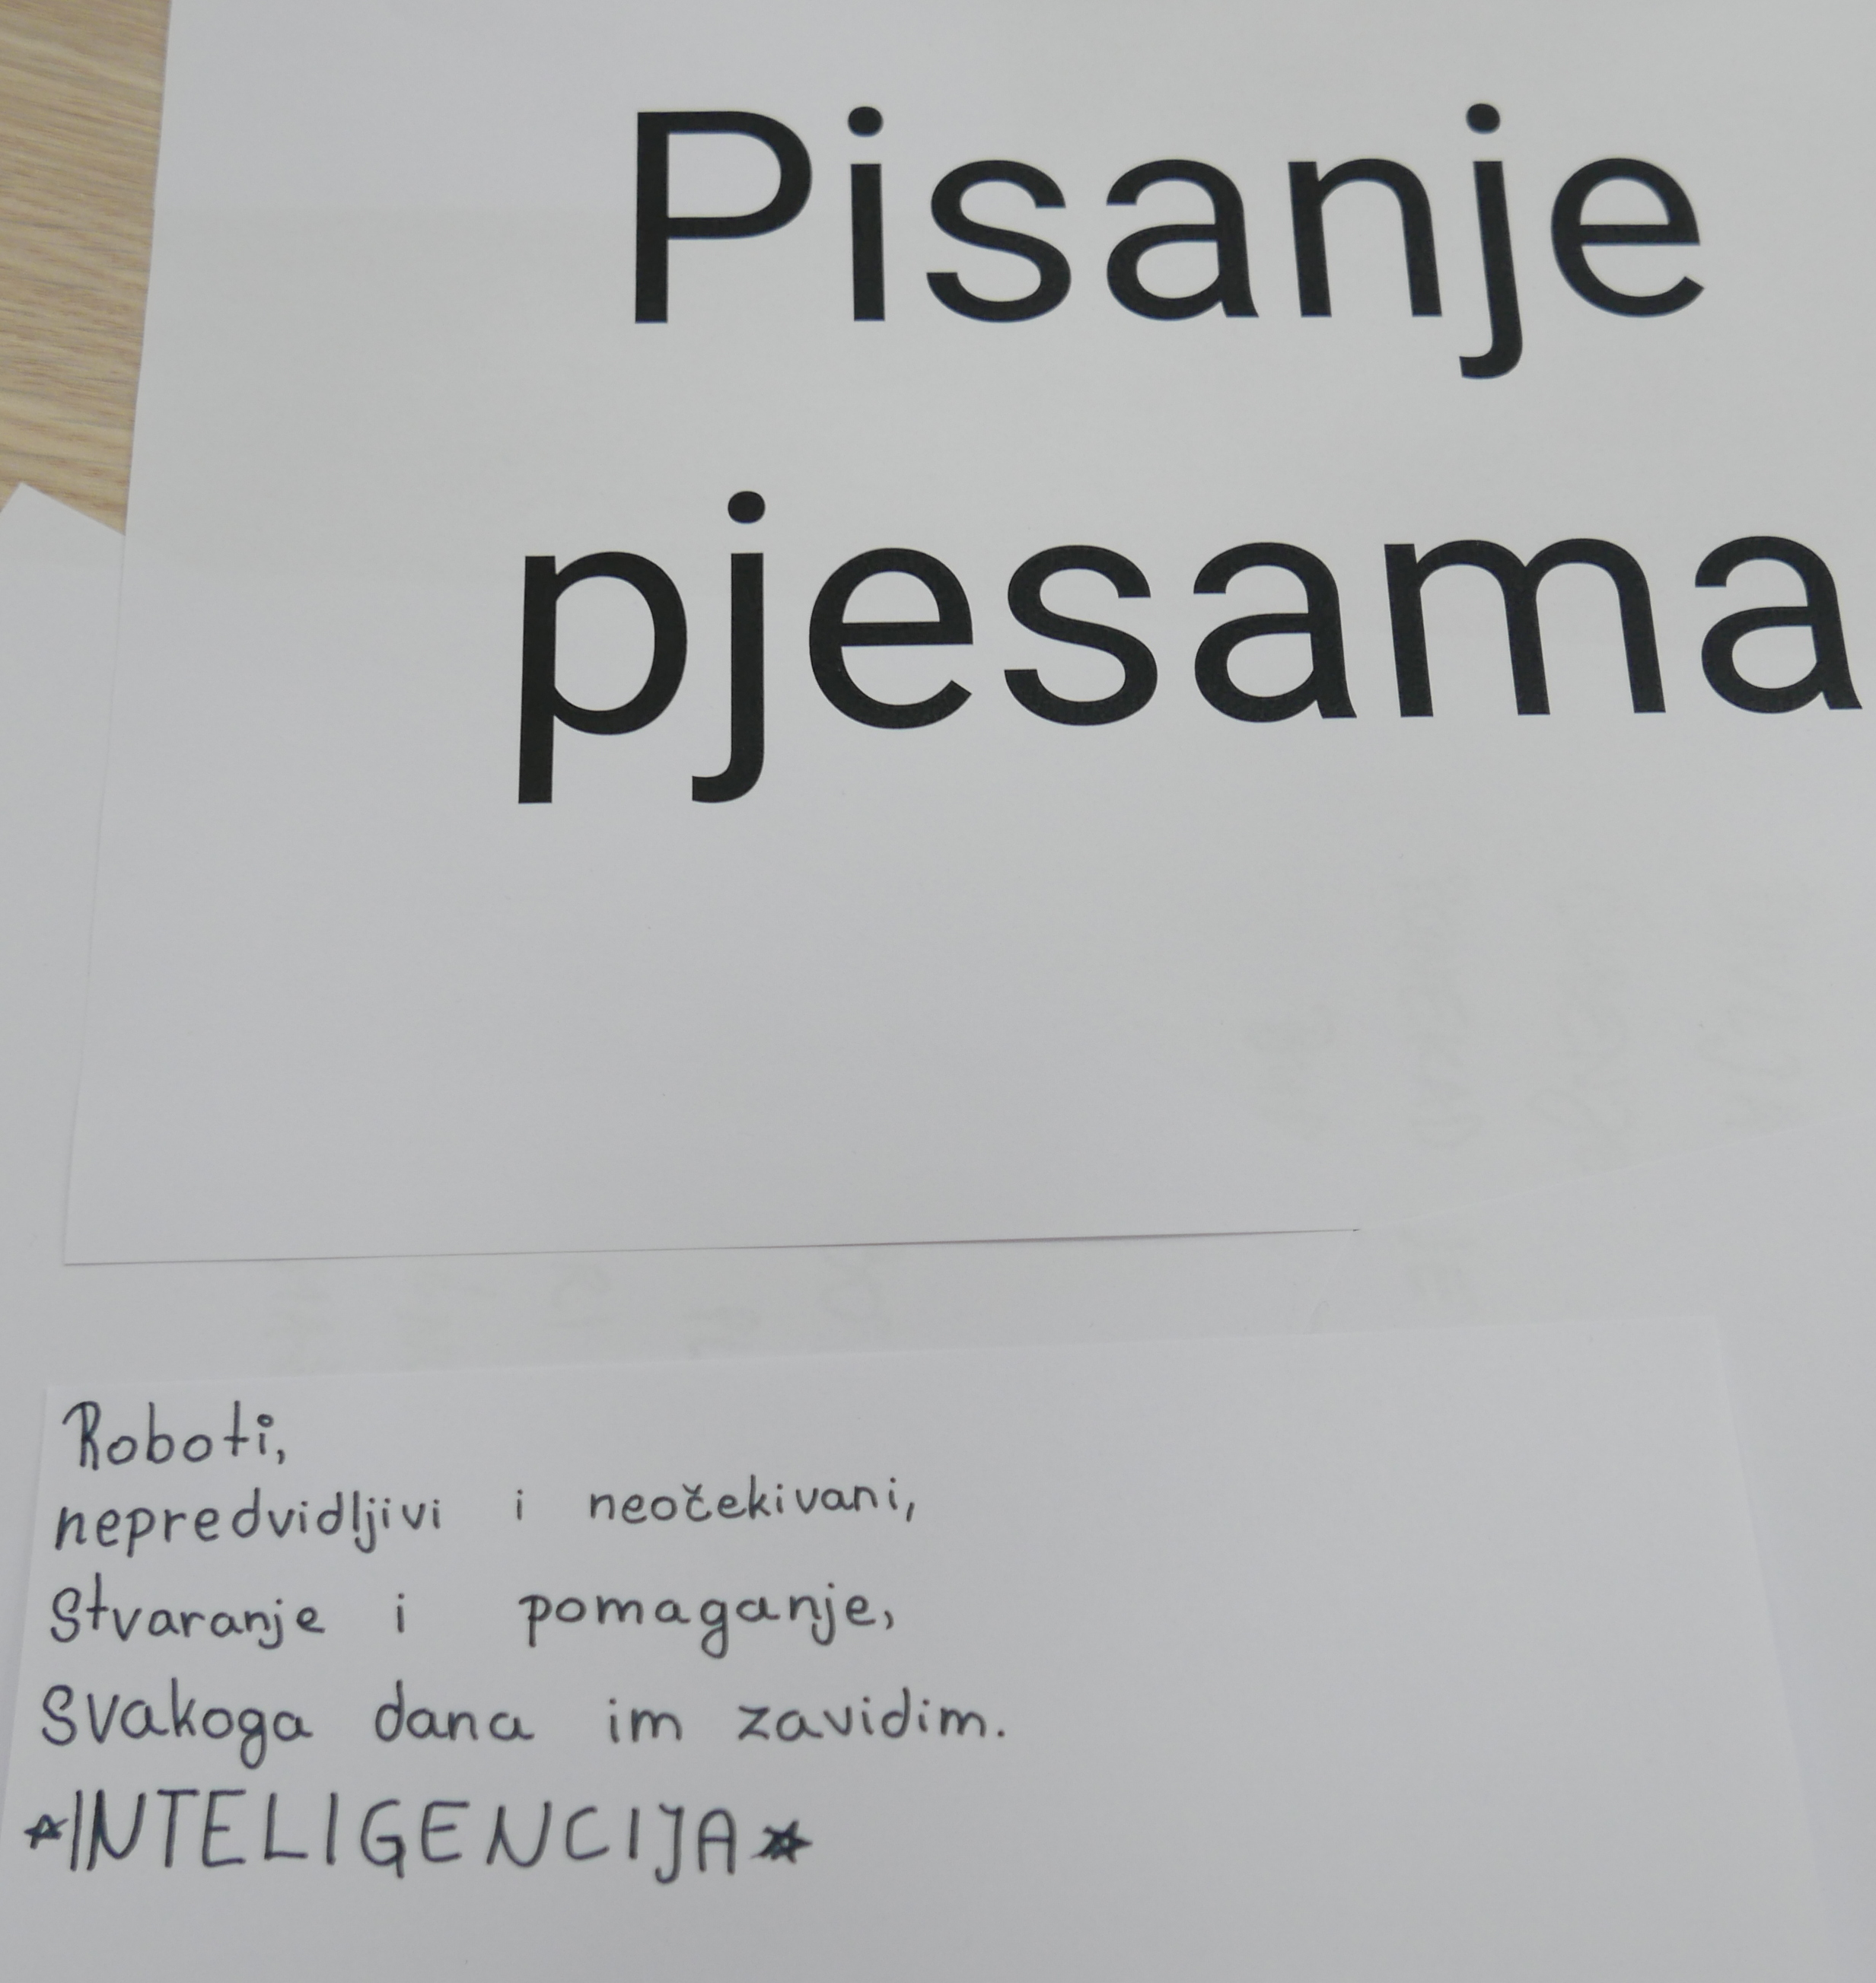 Pisanje
pjesama
Roboti,
nepredvidljivi i neočekivani,
Stvaranje i pomaganje,
Svakoga dana im zavidim.
☆INTELIGENCIJA☆